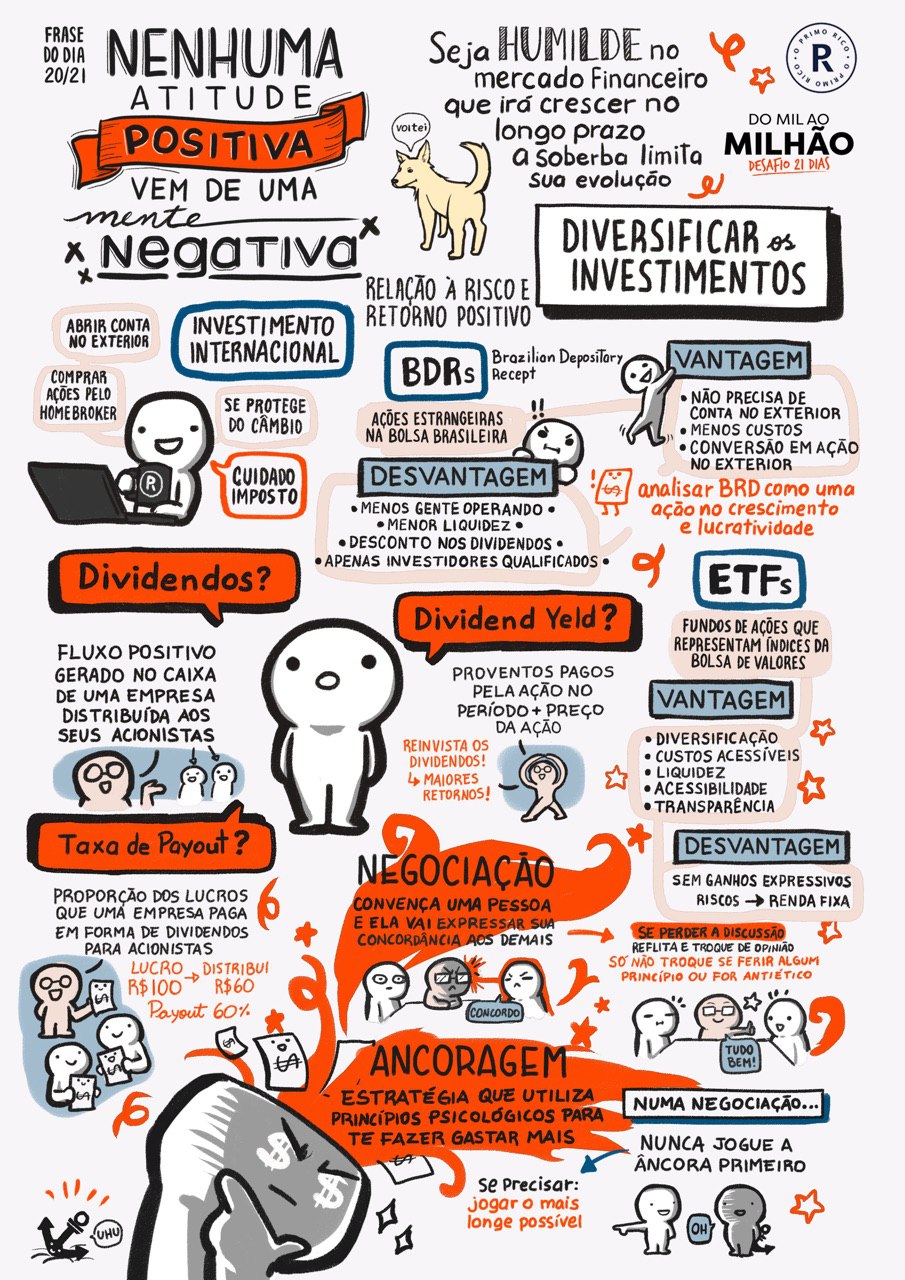 FRASE
DO DIA
20/21
NENHUMA
ATITUDE
POSITIVA
VEM DE UMA
mente
Negativa
voltei
Seja HUMILDE no
mercado Financeiro
que irá crescer no
longo prazo
a soberba limita
sua evolução
O PRIMO RICO • O PRIMO RICO •
R
DO MIL AO
MILHÃO
DESAFIO 21 DIAS
DIVERSIFICAR os
INVESTIMENTOS
RELAÇÃO À RISCO E
RETORNO POSITIVO
INVESTIMENTO
INTERNACIONAL
ABRIR CONTA
NO EXTERIOR
COMPRAR
AÇÕES PELO
HOMEBROKER
SE PROTEGE
DO CÂMBIO
CUIDADO
IMPOSTO
R
BDRs
Brazilian Depositary
Recept
AÇÕES ESTRANGEIRAS
NA BOLSA BRASILEIRA
!!
VANTAGEM
• NÃO PRECISA DE
CONTA NO EXTERIOR
• MENOS CUSTOS
• CONVERSÃO EM AÇÃO
NO EXTERIOR
DESVANTAGEM
• MENOS GENTE OPERANDO •
• MENOR LIQUIDEZ •
• DESCONTO NOS DIVIDENDOS •
• APENAS INVESTIDORES QUALIFICADOS •
! $
analisar BRD como uma
ação no crescimento
e lucratividade
Dividendos?
FLUXO POSITIVO
GERADO NO CAIXA
DE UMA EMPRESA
DISTRIBUÍDA AOS
SEUS ACIONISTAS
Dividend Yeld?
PROVENTOS PAGOS
PELA AÇÃO NO
PERÍODO + PREÇO
DA AÇÃO
REINVISTA OS
DIVIDENDOS!
↳ MAIORES
RETORNOS!
ETFs
FUNDOS DE AÇÕES QUE
REPRESENTAM ÍNDICES DA
BOLSA DE VALORES
VANTAGEM
• DIVERSIFICAÇÃO
• CUSTOS ACESSÍVEIS
• LIQUIDEZ
• ACESSIBILIDADE
• TRANSPARÊNCIA
DESVANTAGEM
SEM GANHOS EXPRESSIVOS
RISCOS → RENDA FIXA
Taxa de Payout?
PROPORÇÃO DOS LUCROS
QUE UMA EMPRESA PAGA
EM FORMA DE DIVIDENDOS
PARA ACIONISTAS
LUCRO → DISTRIBUI
R$100 R$60
Payout 60%
NEGOCIAÇÃO
CONVENÇA UMA PESSOA
E ELA VAI EXPRESSAR SUA
CONCORDÂNCIA AOS DEMAIS
CONCORDO
SE PERDER A DISCUSSÃO
REFLITA E TROQUE DE OPINIÃO
SÓ NÃO TROQUE SE FERIR ALGUM
PRINCÍPIO OU FOR ANTIÉTICO
TUDO
BEM!
ANCORAGEM
ESTRATÉGIA QUE UTILIZA
PRINCÍPIOS PSICOLÓGICOS PARA
TE FAZER GASTAR MAIS
NUMA NEGOCIAÇÃO...
NUNCA JOGUE A
ÂNCORA PRIMEIRO
Se Precisar:
jogar o mais
longe possível
OH
UHU
$ $